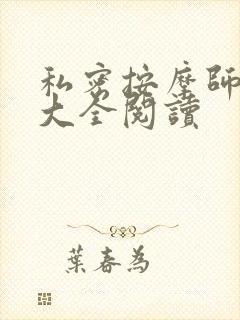 私密按摩師
大全閱讀
葉春為